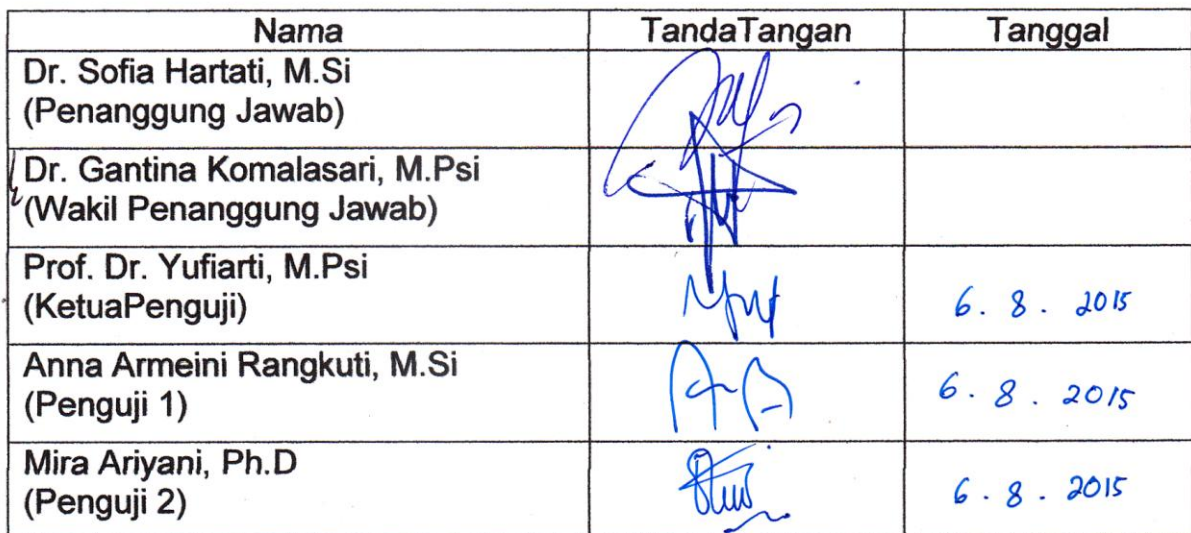 Nama TandaTangan Tanggal
Dr. Sofia Hartati, M.Si
(Penanggung Jawab)
Dr. Gantina Komalasari, M.Psi
(Wakil Penanggung Jawab)
Prof. Dr. Yufiarti, M.Psi
(KetuaPenguji) 6. 8. 2015
Anna Armeini Rangkuti, M.Si
(Penguji 1) 6. 8. 2015
Mira Ariyani, Ph.D
(Penguji 2) 6. 8. 2015